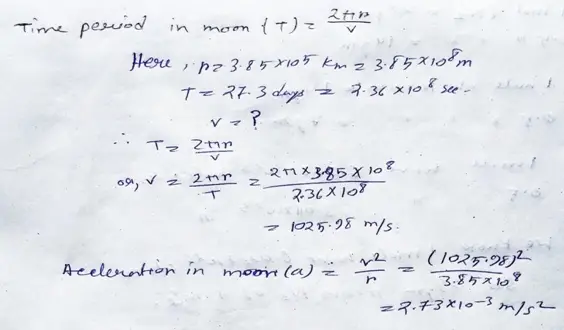 Time period in moon (T) = 2πr/v
Here, r = 3.85×10⁵ Km = 3.85×10⁸m
T = 27.3 days = 2.36×10⁸ sec.
v = ?
∴ T = 2πr/v
or, v = 2πr/T = 2π×3.85×10⁸/2.36×10⁸
= 1025.98 m/s.
Acceleration in moon (a) = v²/r = (1025.98)²/3.85×10⁸
= 2.73×10⁻³ m/s²